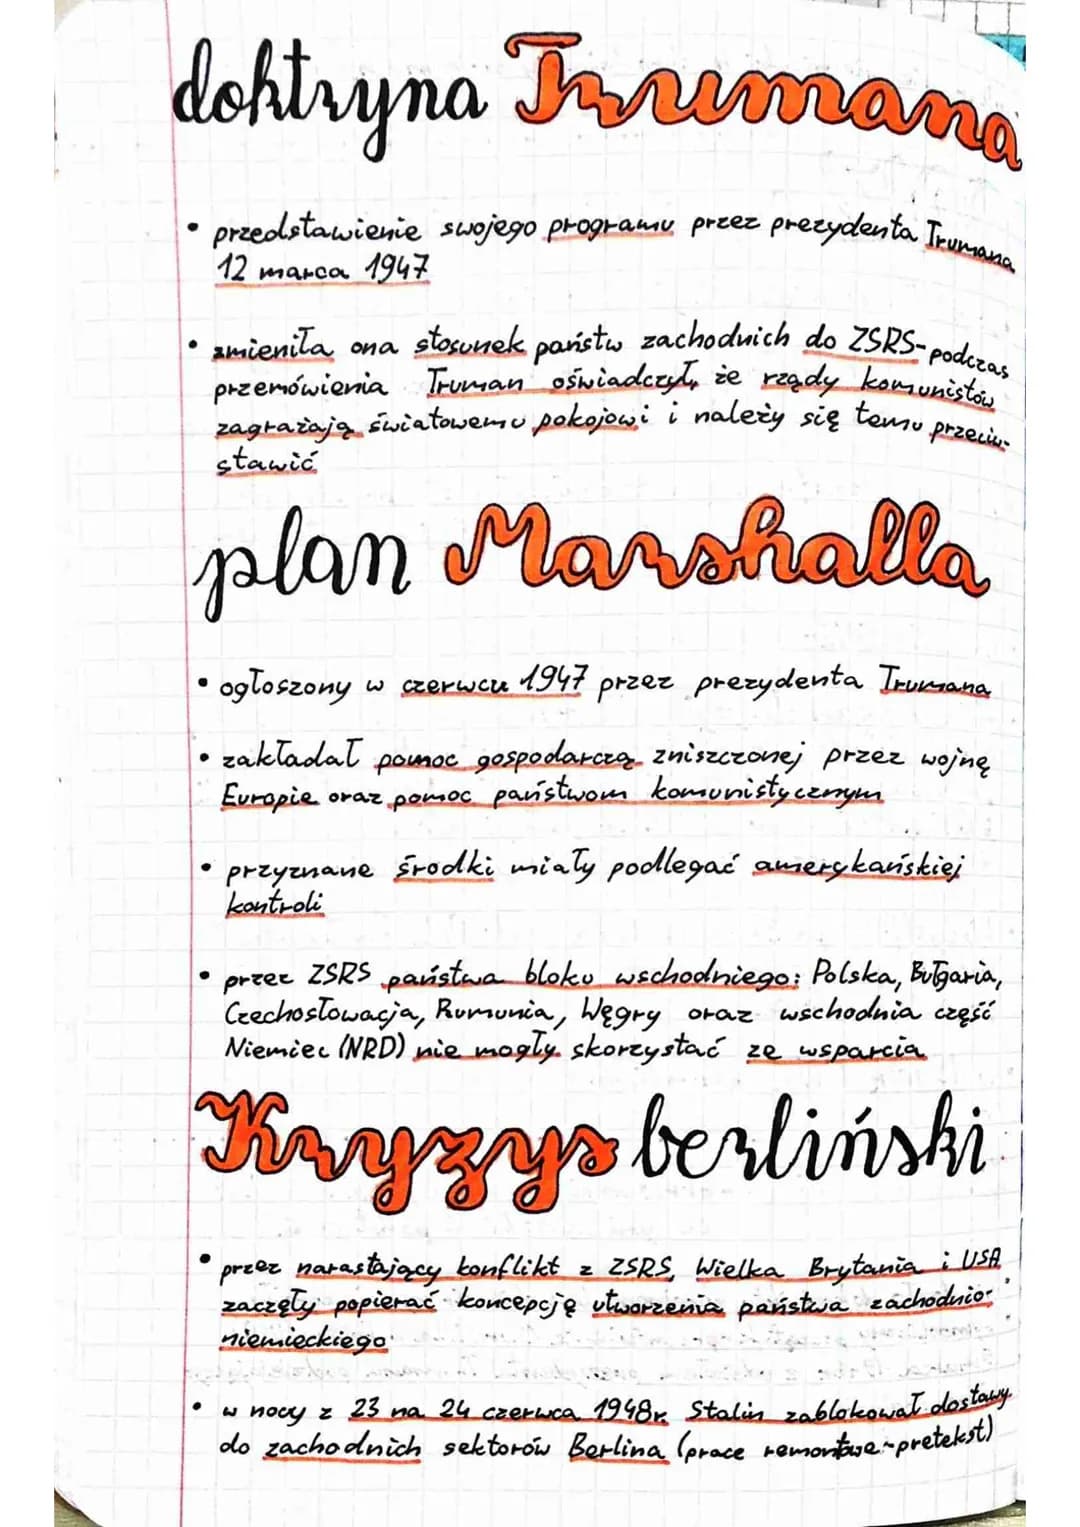 doktryna Trumana
• przedstawienie swojego programu przez prezydenta Trumana
12 marca 1947
• zmieniła ona stosunek państw zachodnich do ZSRS-podczas
przemówienia Truman oświadczył, że rządy komunistów
zagrażają światowemu pokojowi i należy się temu przeciw-
stawić
plan Marshalla
• ogłoszony w czerwcu 1947 przez prezydenta Trumana
• zakładał pomoc gospodarczą zniszczonej przez wojnę
Europie oraz pomoc państwom komunistycznym
• przyznane środki miały podlegać amerykańskiej
kontroli
• przez ZSRS państwa bloku wschodniego: Polska, Bułgaria,
Czechosłowacja, Rumunia, Węgry oraz wschodnia część
Niemiec (NRD) nie mogły skorzystać ze wsparcia
Kryzys berliński
• przez narastający konflikt z ZSRS, Wielka Brytania i USA
zaczęły popierać koncepcję utworzenia państwa zachodnio-
niemieckiego
• w nocy z 23 na 24 czerwca 1948r. Stalin zablokował dostawy
do zachodnich sektorów Berlina (prace remontowe-pretekst)